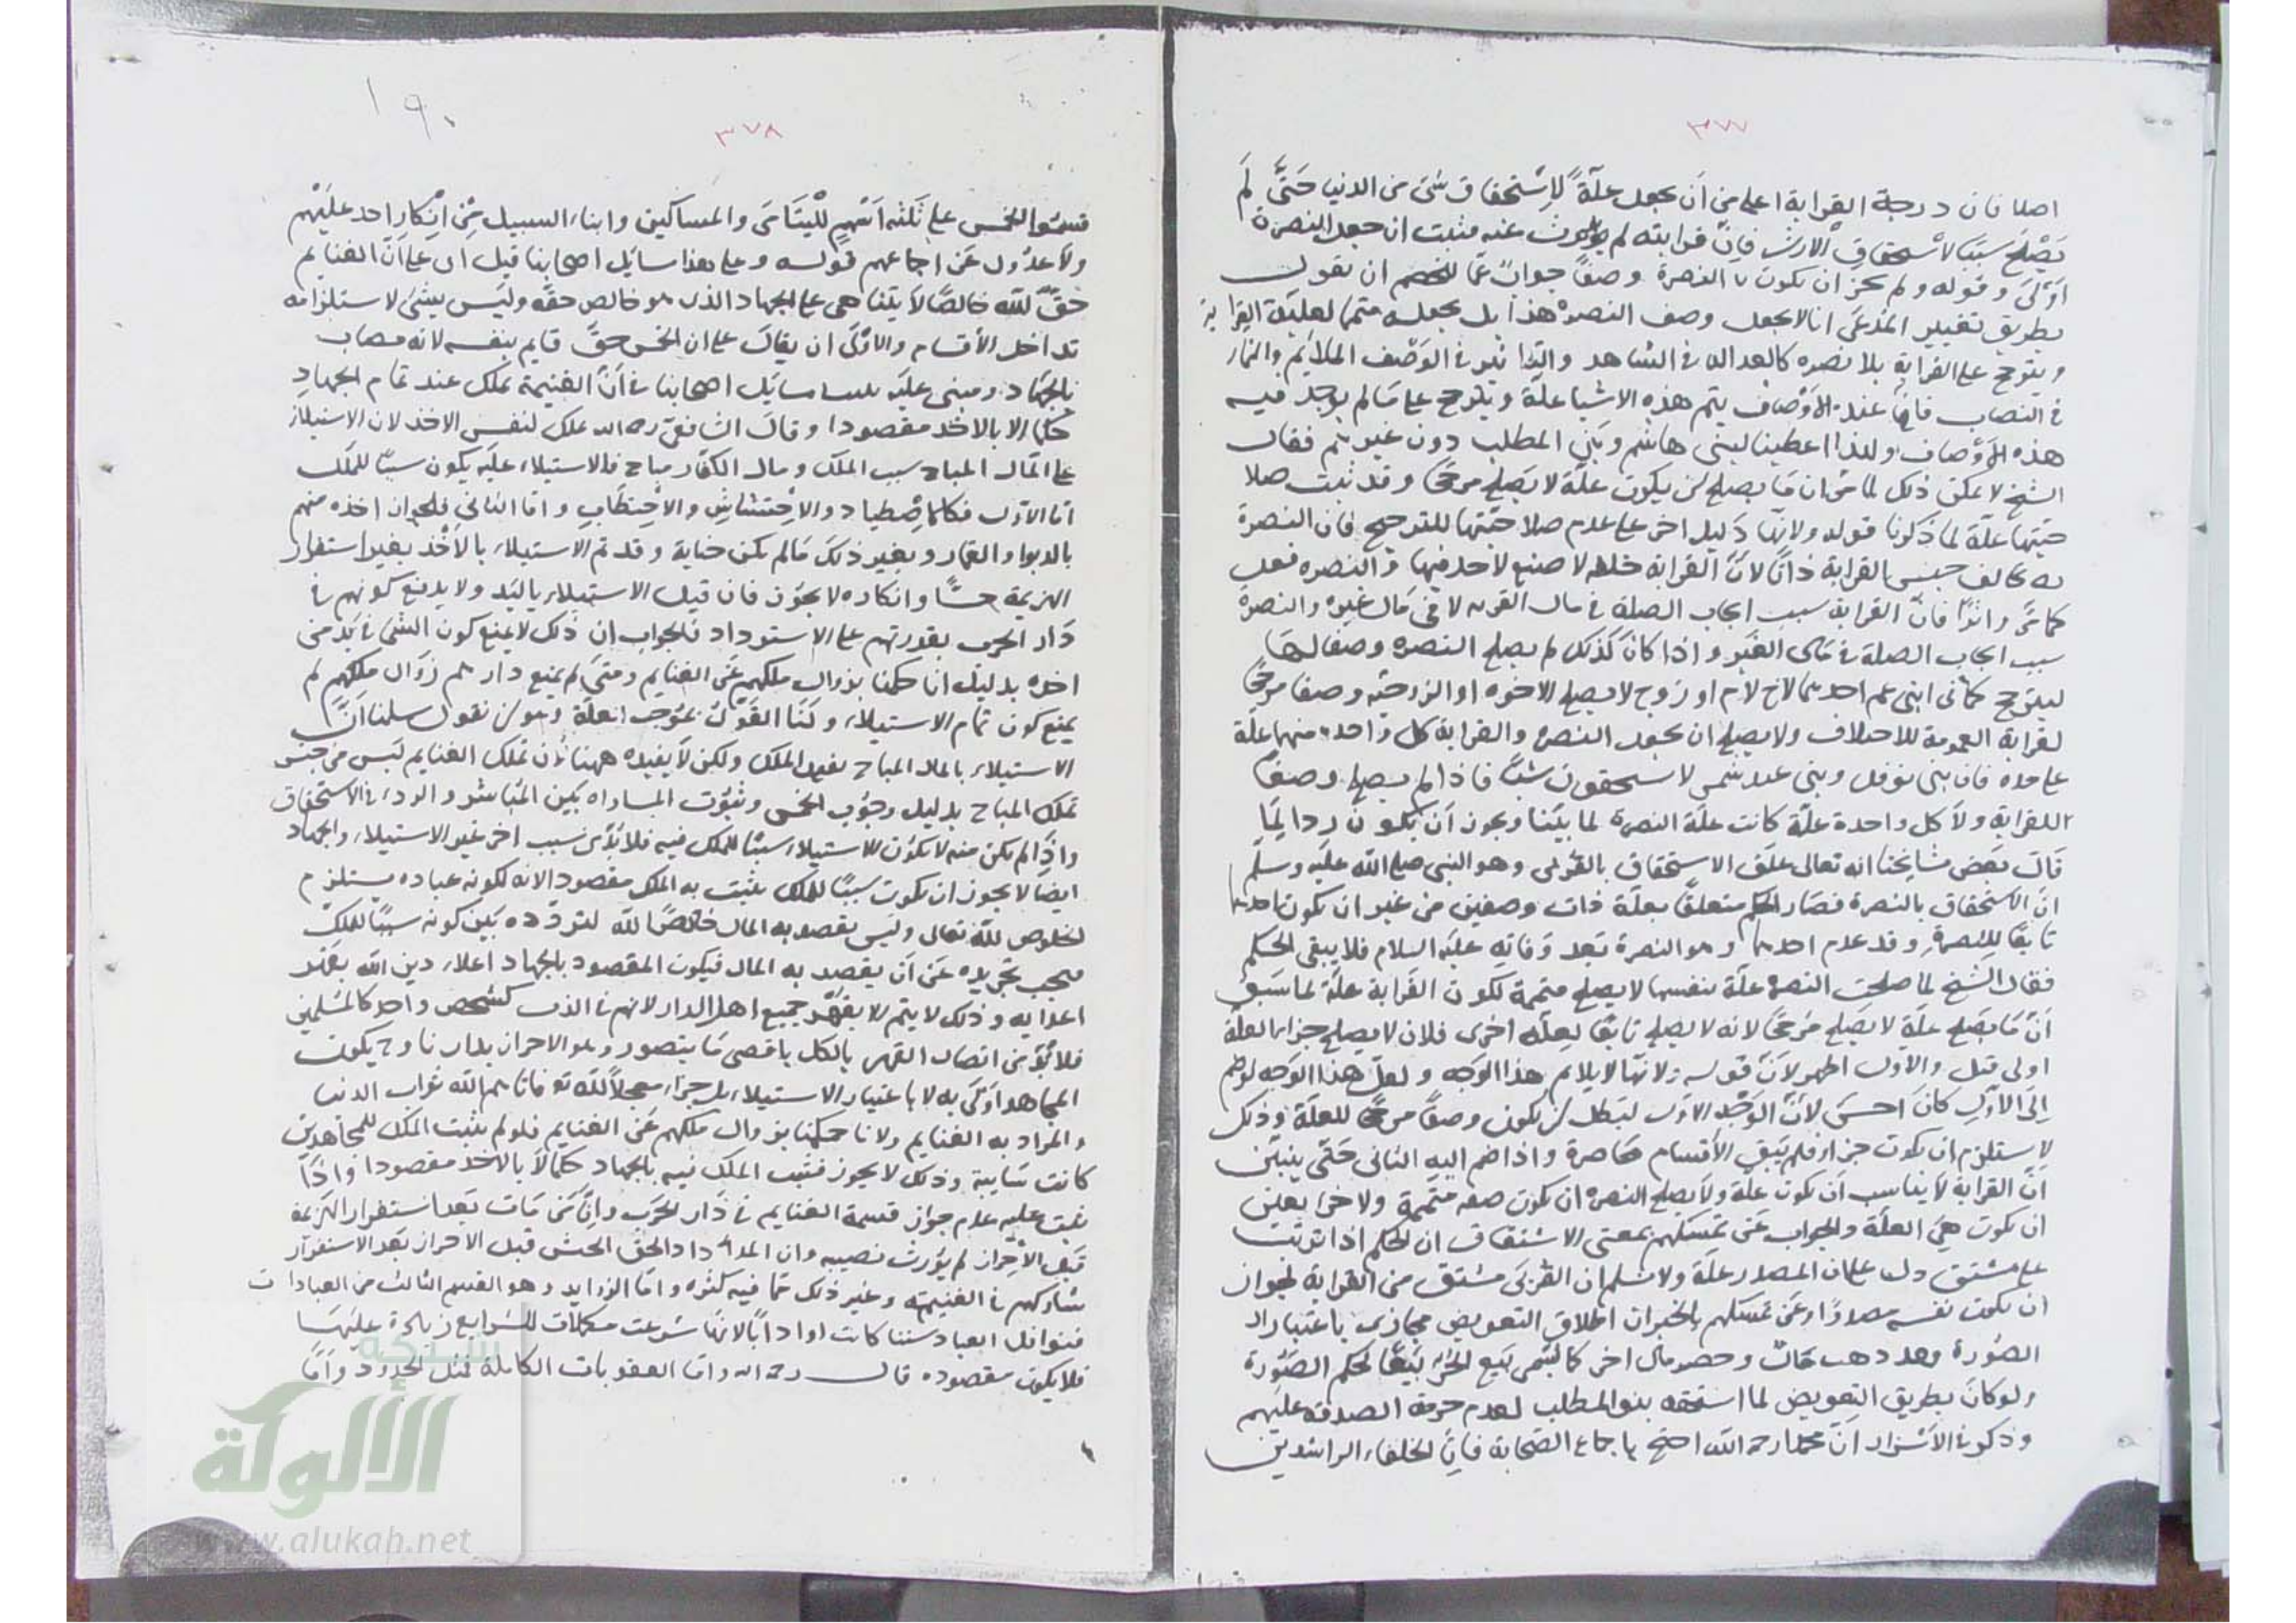 ٣٧٧
اصلا فان درجة القرابة اعلى من أن يجعل علّة لإستحقاق شئ من الدنيا حتّى لم
يَصْلح سَبَبًا لاستحقاق الارث فانّ قرابته لم يورث عنه فثبت ان جعل النصرة
اَوْلَى وقوله ولم يجز ان يكون النصرة وصفًا جوابٌ عمّا للخصم ان يقول
بطريق تغيير المدّعَى انا لا نجعل وصف النصرة هذا بل نجعله متمما لعلّية القرابة
ويترجح على القرابة بلا نصره كالعدالة فى الشاهد والتاثير فى الوَصْف الملايم والنماء
فى النصاب فانّ عند الأوْصاف يتم هذه الاشيا علّة ويترجح على ما لم يوجد فيه
هذه الأوْصاف ولهذا اعطينا لبنى هاشم وبَنى المطلب دون غيرهم فقال
الشيخ لا يمكن ذلك لما مرّ ان مَا يصلح لن يكون علّة لا يَصلح مرجّحًا وقد ثبت صلا
حيّتها علّة لما ذكرنا قوله ولانها دَليل اخر على عدم صلاحيّتها للترجيح فان النصرة
تخالف جنس القرابة ذاتًا لانّ القرابة خلقة لا صنع لاحد فيها والنصره فعل
كما مرّ واثرًا فانّ القرابة سَبب ايجاب الصلة فى مال القريب لا فى مَال غيره والنصرة
سبب ايجاب الصلة فى مَال الغَير واذا كانَ كذلك لم يصلح النصره وصفا لهَا
ليترجح كما فى ابنى عم احدهما لاخ لام او زوج لا يصلح الاخوه او الزوجيّه وصفا مرجّحًا
لقرابة العمومة للاختلاف ولا يصلح ان يجعل النصره والقرابة كل واحد منها علّة
على حده فان بنى نوفل وبنى عبد شمس لا يستحقون شيئًا فاذا لم يصلح وصفًا
للقرابة ولا كل واحدة علّة كانت علّة النصرة لما بيّنا ويجوز أن يكون ردا لِمَا
قالَ بَعض مشايخنا انه تعالى علّق الاستحقاق بالقربى وهو النبى صلى الله عليه وسلّم
انّ الاستحقاق بالنصرة فصَار الحكم متعلّقًا بعلّة ذات وصفين من غير ان يكون احدهما
تابعًا للنصرة وقد عدم احدهما وهو النصرة بَعد وَفاته عليه السلام فلا يبقى الحكم
فقال الشيخ لما صلحت النصره علّة بنفسها لا يصلح متممة لكون القَرابة علّة لما سَبق
أنّ مَا يصَلح علّة لا يصَلح مرَجّحًا لانه لا يصلح تابعًا لعلّه اخرى فلان لا يصلح جزاء العلّة
اولى قيل والاول اظهر لانّ قوله ولانّها لا يلايم هذا الوَجه ولعلّ هذا الوَجه لو ضم
إلى الأوّل كانَ احسَن لانّ الوَجْه الاوّل ليبَطل لن يكون وصفًا مرجّحًا للعلّة وذلك
لا يستلزم ان يكون جزا فلم يَبق الأقسام حَاصرة واذا ضم اليه الثانى حَتّى يتبيّن
انّ القرابة لا يناسب أن يكون علّة ولا يصلح النصره ان يكون صفه متممة ولا جزا يعلين
ان يكون هىَ العلّة والجواب عَن تمسكهم بمعنى الاشتقاق ان الحكم اذا ترتّب
على مشتق دل على ان المصدر علّة ولا نسلم ان القُربَى مشتق من القرابة لجواز
ان يكون نفسه مصدرًا وعن تمسكهم بالخبر ان اطلاق التعويض مجازى باعتبار ال
الصُورة وحصر مال اخر كما سُمى بَيع الحر بَيعًا لحكم الصُوَرة
ولو كانَ بطريق التعويض لما استحقه بنو المطلب لعدم حرمة الصدقة عليهم
وذكر فى الأسْرار انّ محمدا رحمه الله احتج باجماع الصَحابة فانّ الخلفاء الراشدين
٣٧٨
١٩٠
قسمُوا الخمس على ثلثه اَسْهم للْيتَامَى والمساكين وابناء السبيل مِن اِنْكار احد عليهم
ولا عدُول عَن اجماعهم قوله وعلى هذا سائل اصحابنا قيل اى على اَنّ الغنايم
حقٌ للّه خالصًا لا يتناهى على الجهاد الذى هو خالص حقه وليَس بشئ لاستلزامه
تداخل الأقسام والاوْلَى ان يقال على ان الخمس حقٌ قايم بنفسه لانه مصاب
بالجهَاد ومبنى عليَه مسايل اصحابنا فى اَنّ الغنيمة تملك عند تمام الجهادِ
حكما لا بالاخذ مقصودا وقالَ الشافعى رحمه الله تملك لنفس الاخذ لان الاستيلاء
على المَال المباح سبب الملك ومال الكفّار مباح فالاستيلاء عليَه يكون سببًا للملَك
امّا الاوّل فكالاِصْطياد والاِحْتشاش والاحْتِطَابِ وامّا الثانى فلجواز اخذه منهم
بالربوا والقمار وبغير ذلكَ مَا لم يكن خيانة وقد تم الاستيلاء بالاَخْذ بغير استقرار
الهزيمة حسًّا وانكاره لا يجوز فان قيل الاستيلاء باليَد ولا يدفع كونهم فى
دَار الحرب بقدرتهم على الاسترداد فالجواب ان ذلك لا يمنع كون الشئ فى يَد من
اخذه بدليل انا حكمنا بزوال ملكهم عَن الغنايم ومتَى لم يمنع دارهم زوَال ملكهم لم
يمنع كون تمام الاستيلاء ولَنَا القوْل بمُوجب العلّة وهو لن نقول سلمنا انّ
الاستيلاء بالمال المباح يفيد الملك ولكن لا يفيده ههنا لان تملك الغنايم ليَس من جنس
تملك المباح بدليل وجُوب الخمس وثبُوت المساواه بَين المُبَاشر والردء فى الاستحقاق
واذا لم يكن منه لا يكون الاستيلاء سببًا للملك فيه فلا بُدّ من سَبب اخر غير الاستيلاء والجهاد
ايضًا لا يجوز ان يكون سَببًا للملك يثبت به الملك مقصودا لانه لكونه عباده يستلزم
الخلوص للّه تعالى وليَس يقصد به المال خَالصًا للّه لتردّده بَين كونه سببًا للملك
فيجب تجريده عَن أن يقصد به المال فيكون المقصود بالجهاد اعلاء دين اللّه بقَهر
اعدايه وذلك لا يتم الا بقَهر جميع اهل الدار لانهم فى الذب كشخص واحد كالمُسلمين
فلا بُدّ من اتصال القهر بالكل باقصى مَا يتصور وهو الاحراز بدارنا وح يكون
المجاهد اوَلَى به لا باعتبار الاستيلاء بل جزاء معجلاً للّه تع فاتاهم اللّه ثواب الدنيا
والمراد به الغنايم ولانا حكمنا بزوال ملكهم عَن الغنايم فلو لم يثبت الملك للمجاهدين
كانت سَايبة وذلك لا يجوز فثبت الملك فيه بالجهاد حكمًا لا بالاخذ مقصودا واذَا
ثبت عليه عدم جواز قسمة الغنايم فى دَار الحرَب وانّ مَن مَات بَعد استقرار الهزيمة
قَبل الاحْراز لم يوُرث نصيبه وان المدد اذا لحق الجيش قبل الاحراز بَعد الاستقرار
شاركهم فى الغنيمة وغير ذلك ممّا فيه كثره وامّا الزوايد وهو القسم الثالث من العبادات
فنوافل العباد سننا كانت او ادابًا لانها شرعت مكملات للشرايع زيادة عليَها
فلا يكون مقصوده قالـــ رحمه الله وامّا العقوبات الكاملة فمثل الحدود وامّا
شبكة
الألوكة
www.alukah.net